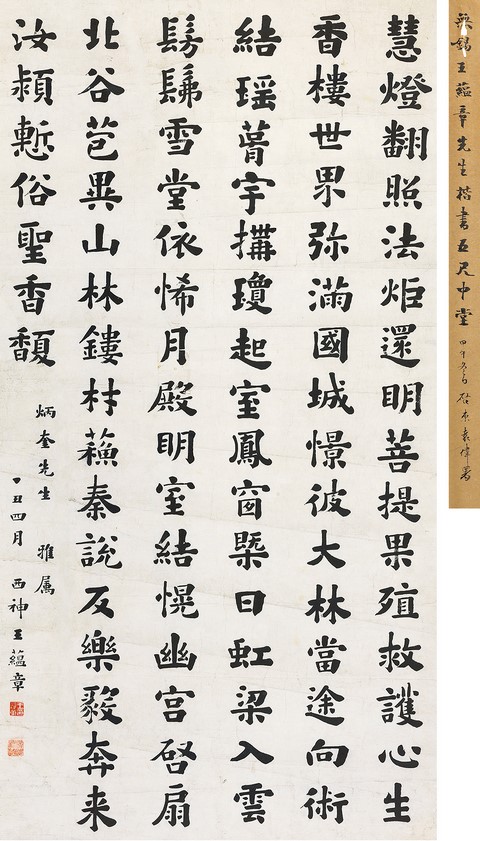 無錫王蘊章先生楷書五尺中堂
慧燈翻照法炬還眀菩提果殖救護心生
香樓世界弥滿國城憬彼大林當途向術
結瑶葺宇搆瓊起室鳳窗槩日虹梁入雲
髣髴雪堂依悕月殿眀室結愰幽宫啓扇
北谷苞異山林鏤村蘓秦說反樂毅奔来
汝潁慙俗聖香馥
炳奎先生 雅属
丁丑四月 西神王蘊章